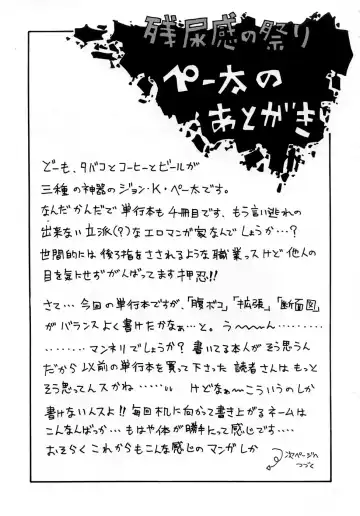 残尿感の祭り
ペー太の
あとがき
どーも、タバコとコーヒーとビールが
三種の神器のジョン・K・ペー太です。
なんだかんだで単行本も4冊目です、もう言い逃れの
出来ない立派(?)なエロマンガ家なんでしょうか…?
世間的には後ろ指をさされるような職業っスけど他人の
目を気にせずがんばってます押忍!!
さて…今回の単行本ですが、「腹ボコ」「拡張」「断面図」
がバランスよく書けたかなぁ…と。う〜〜〜ん………
………マンネリでしょうか?書いてる本人がそう思うん
だから以前の単行本を買って下さった読者さんはもっと
そう思ってんスかね………けどなぁ〜こういうのしか
書けない人スよ!!毎回机に向かって書き上がるネームは
こんなんばっか…もはや体が勝手にって感じです…
おそらくこれからもこんな感じのマンガしか
次ページへ
つづく